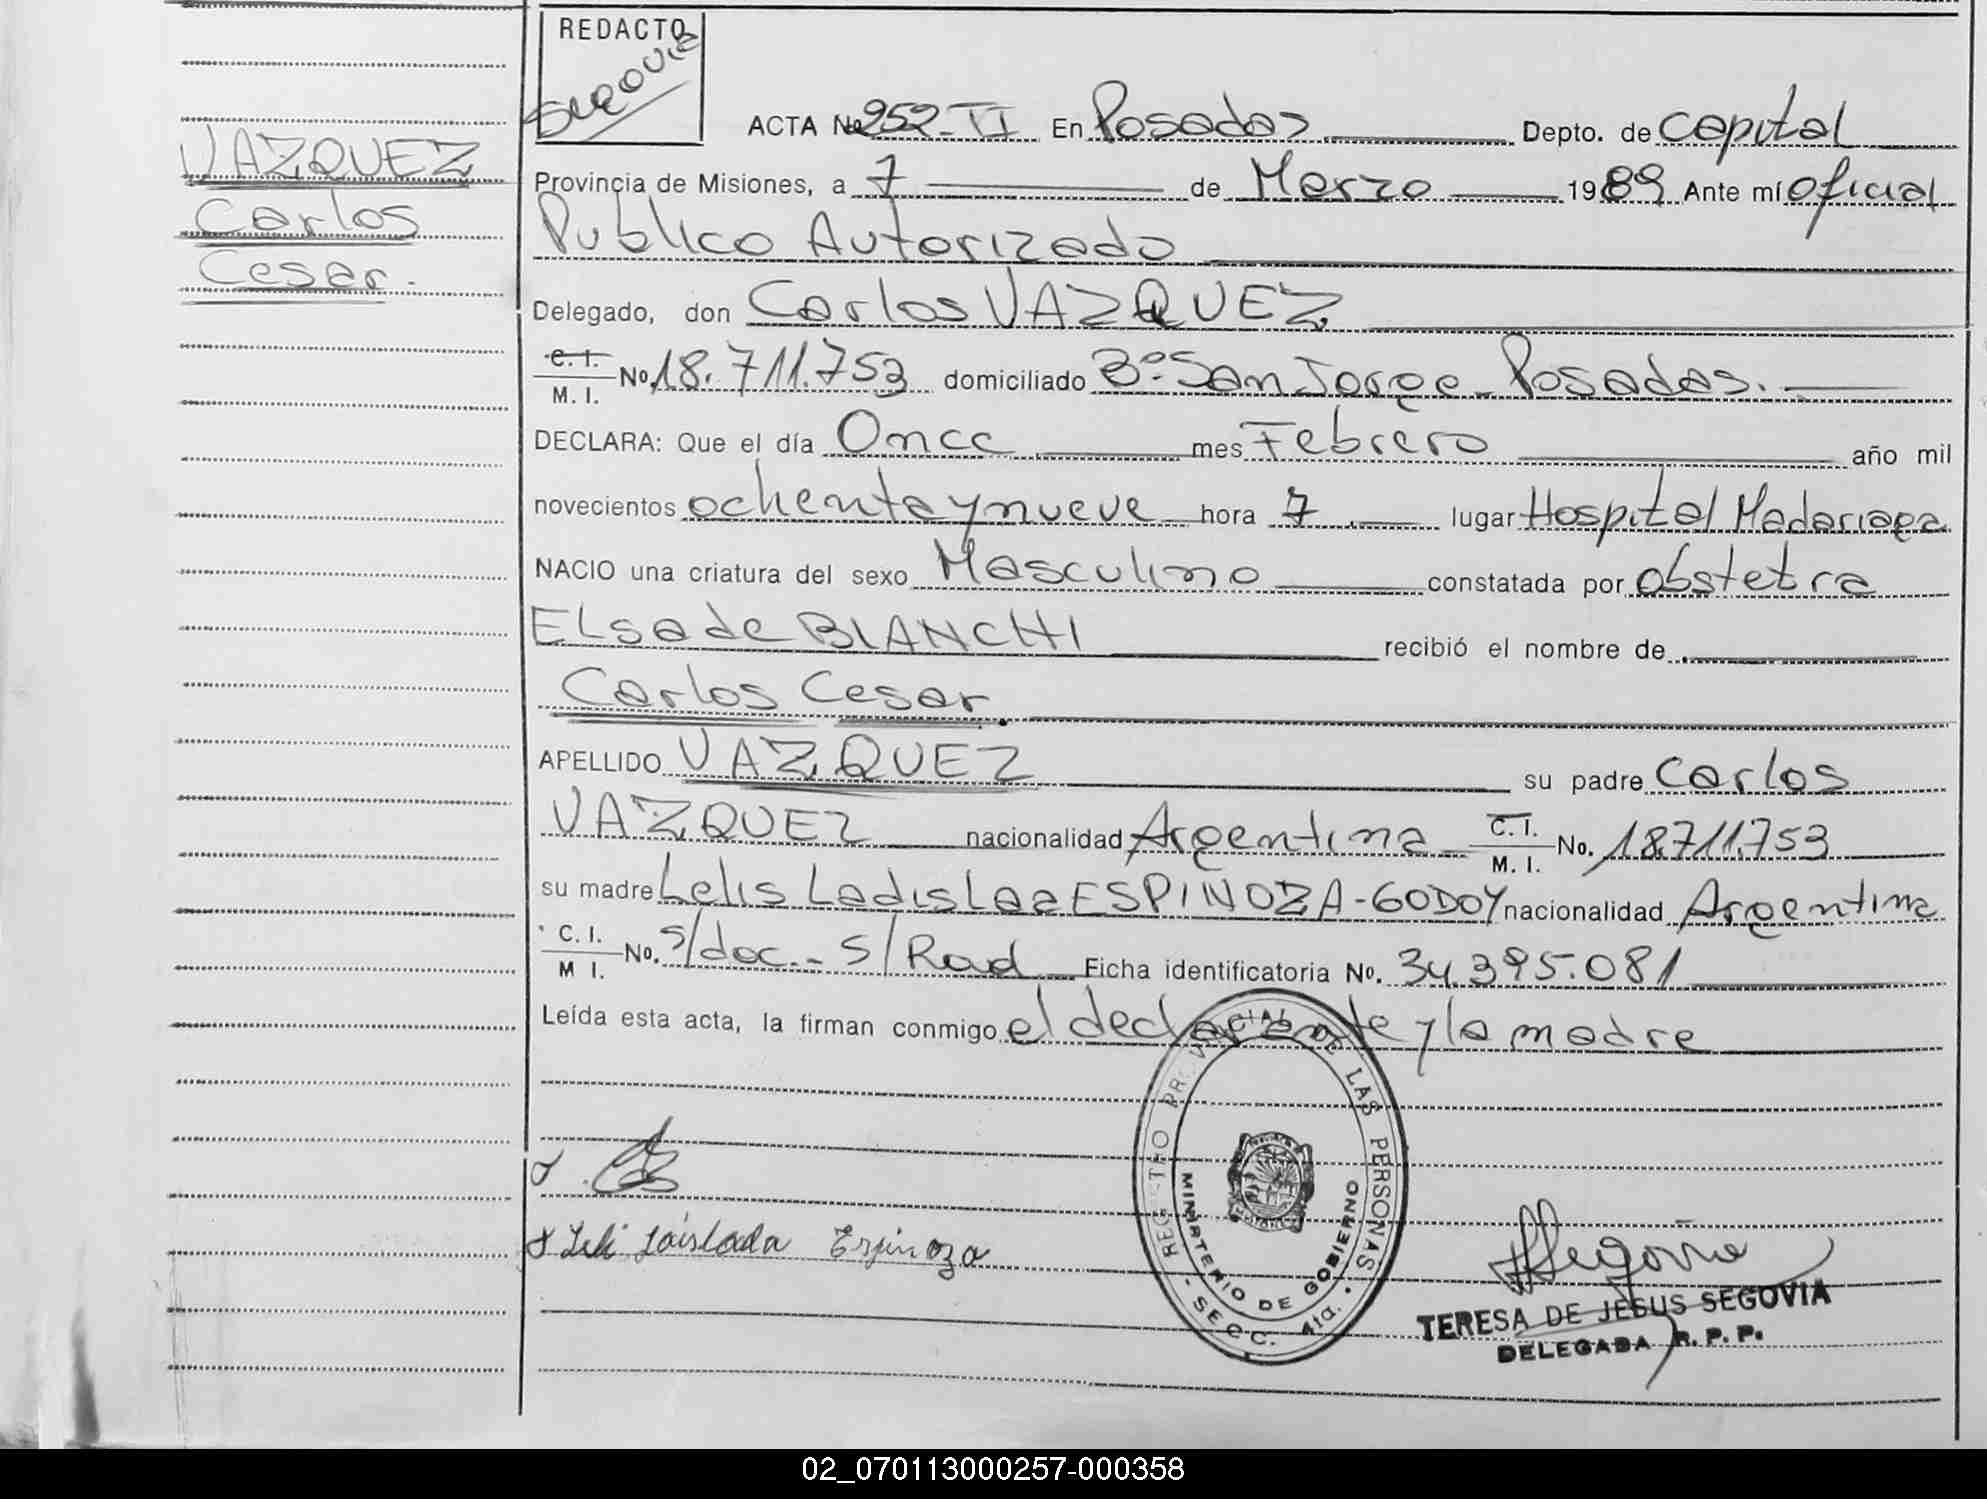 REDACTO
SEGOVIA
VAZQUEZ
Carlos
Cesar.
ACTA No 252-TI En Posadas Depto. de Capital
Provincia de Misiones, a 7 de Marzo 1989 Ante mí Oficial
Publico Autorizado
Delegado, don Carlos VAZQUEZ
C. I.
M. I. No. 18.711.753 domiciliado Bº. San Jorge - Posadas.
DECLARA: Que el día Once mes Febrero año mil
novecientos ochenta y nueve hora 7 lugar Hospital Madariaga
NACIO una criatura del sexo Masculino constatada por obstetra
ELsa de BIANCHI recibió el nombre de
Carlos Cesar.
APELLIDO VAZQUEZ su padre Carlos
VAZQUEZ nacionalidad Argentina C. I. M. I. No. 18711.753
su madre Lelis Ladislaa ESPINOZA - GODOY nacionalidad Argentina
C. I. M I. No. s/doc.- S/Rad Ficha identificatoria No. 34.395.081
Leída esta acta, la firman conmigo el declarante y la madre
REGISTRO PROVINCIAL DE LAS PERSONAS
MINISTERIO DE GOBIERNO
- SECC. 4ta. -
Espinoza
Segovia
TERESA DE JESUS SEGOVIA
DELEGADA R. P. P.
02_070113000257-000358